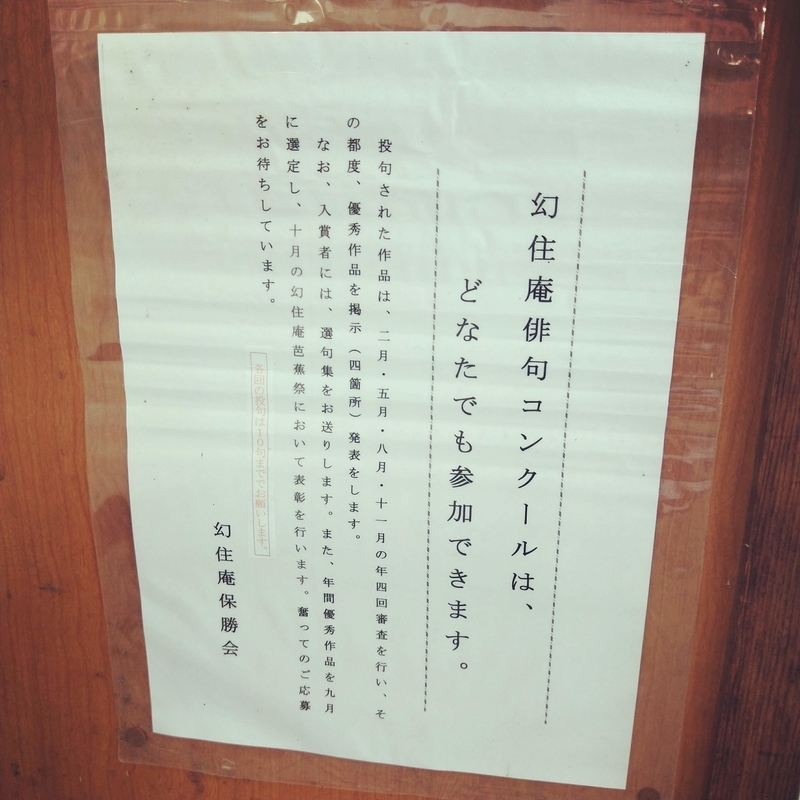 幻住庵俳句コンクールは、
どなたでも参加できます。
投句された作品は、二月・五月・八月・十一月の年四回審査を行い、そ
の都度、優秀作品を掲示（四箇所）発表をします。
なお、入賞者には、選句集をお送りします。また、年間優秀作品を九月
に選定し、十月の幻住庵芭蕉祭において表彰を行います。奮ってのご応募
をお待ちしています。
各回の投句は10句まででお願いします。
幻住庵保勝会